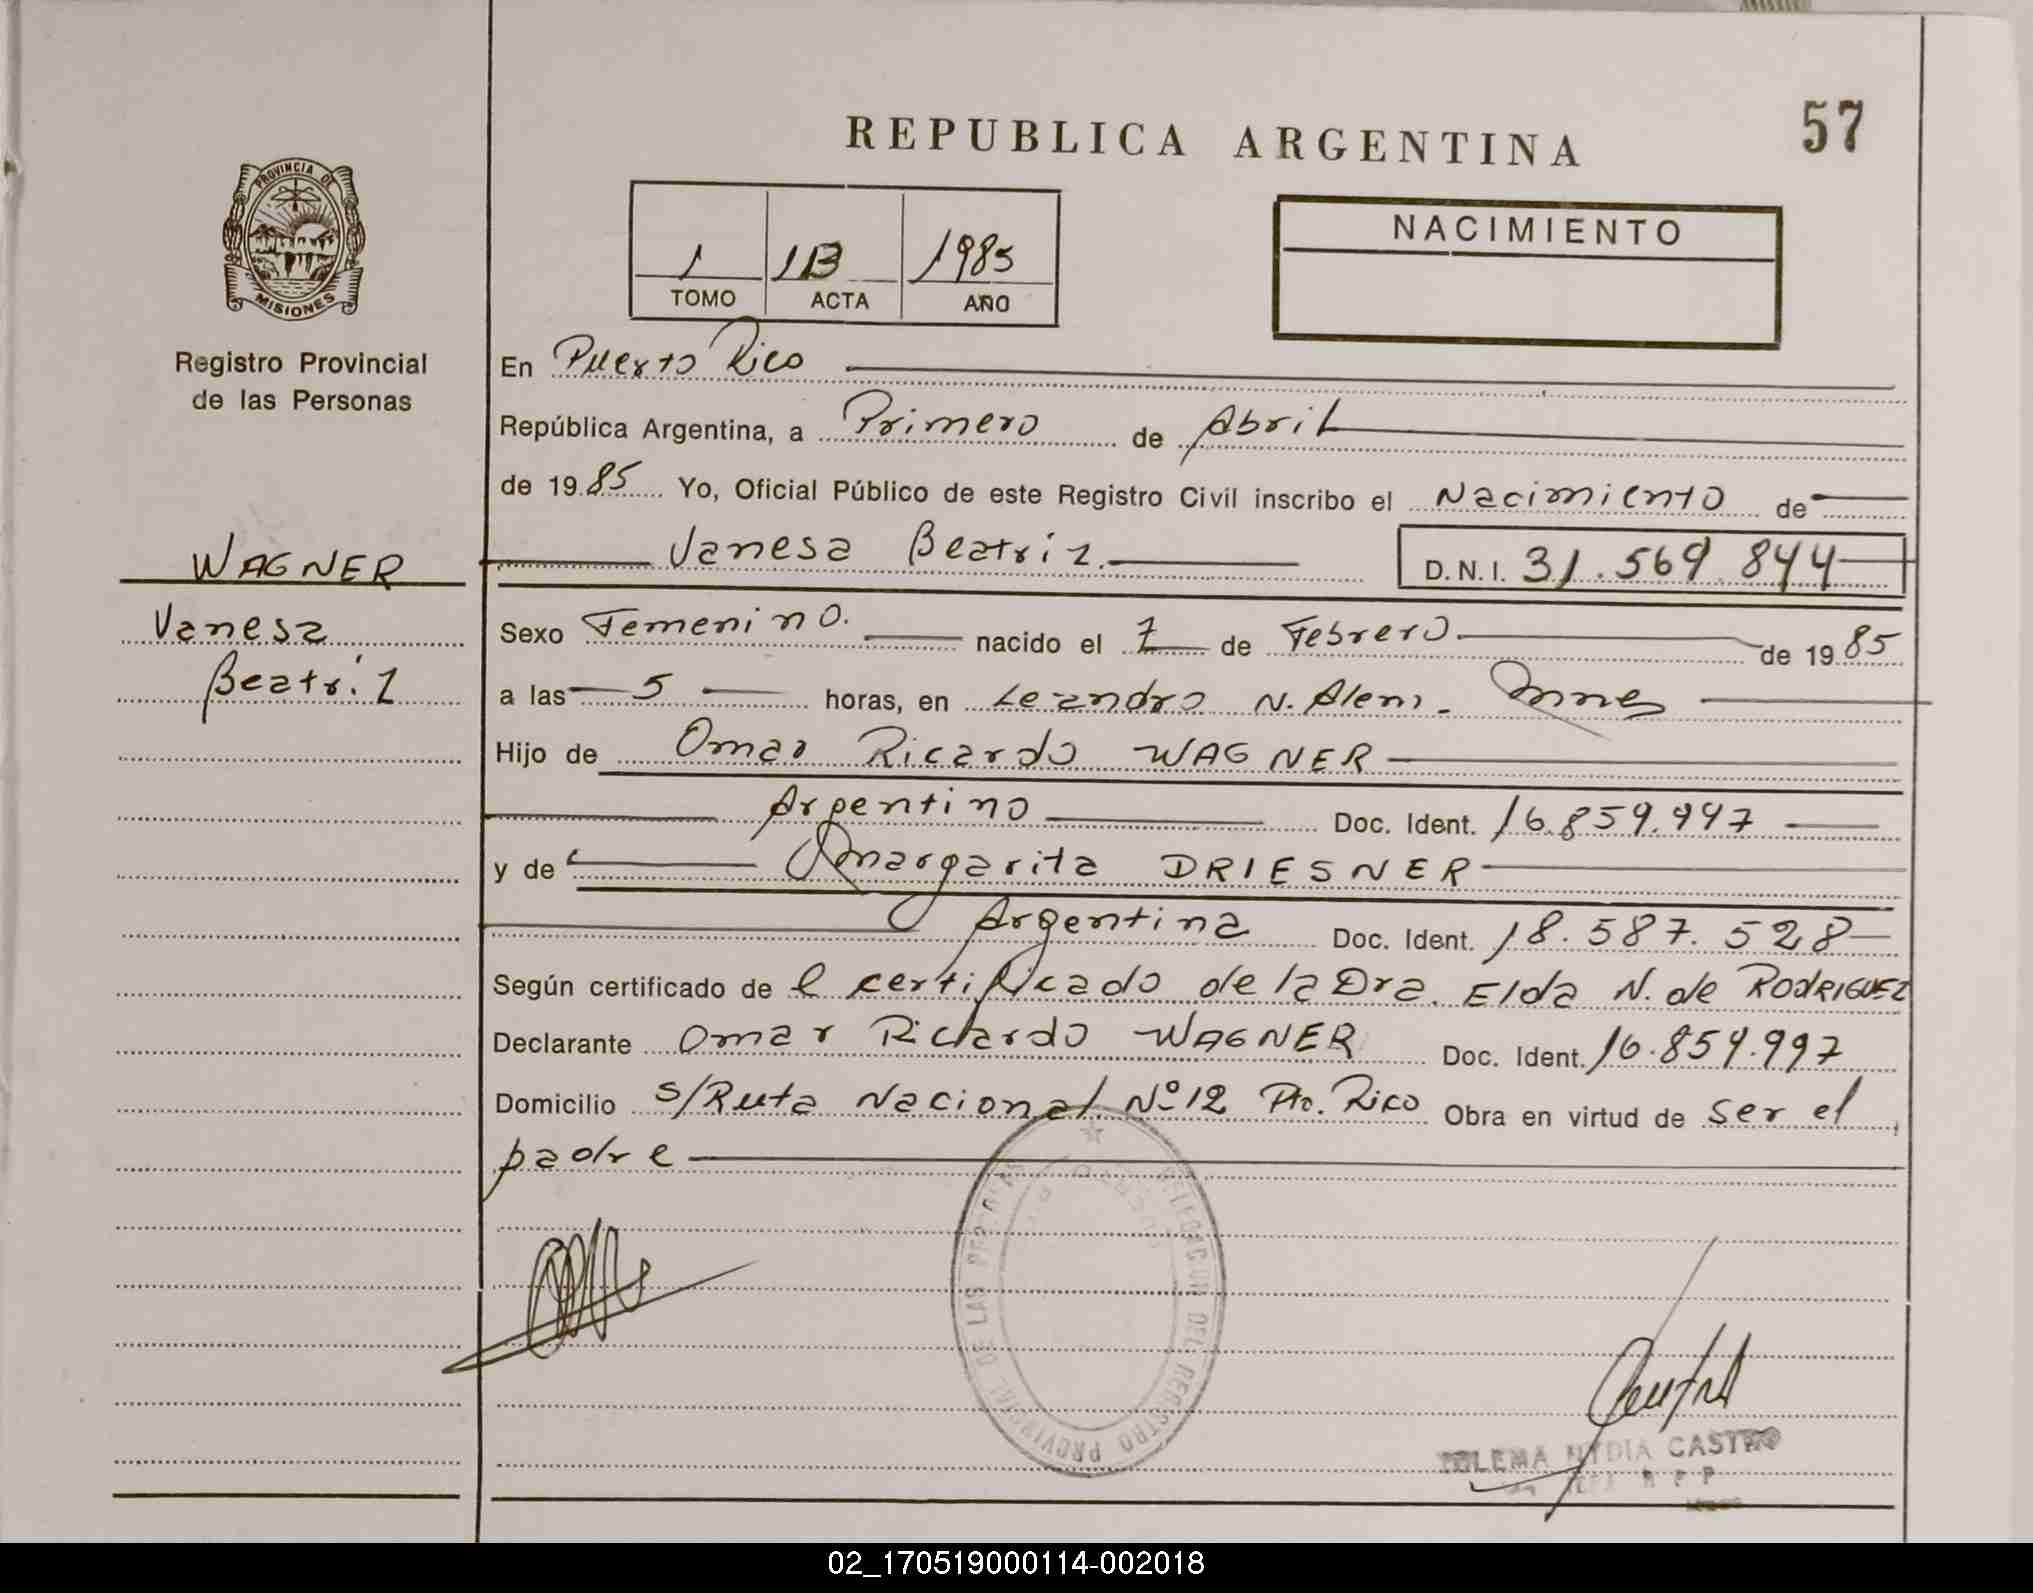 57
REPUBLICA ARGENTINA
PROVINCIA DE
MISIONES
Registro Provincial
de las Personas
1 1B 1985
TOMO ACTA AÑO
NACIMIENTO
En Puerto Rico
República Argentina, a Primero de Abril
de 1985 Yo, Oficial Público de este Registro Civil inscribo el Nacimiento de
WAGNER
Vanesa
Beatriz
Vanesa Beatriz D.N.I. 31.569.844
Sexo Femenino. nacido el 7 de Febrero de 1985
a las 5 horas, en Leandro N. Alem - Mnes
Hijo de Omar Ricardo WAGNER
Argentino Doc. Ident. 16.859.997
y de Margarita DRIESNER
Argentina Doc. Ident. 18.587.528
Según certificado de l certificado de la Dra. Elda N. de RODRIGUEZ
Declarante Omar Ricardo WAGNER Doc. Ident. 16.859.997
Domicilio s/Ruta Nacional Nº 12 Pto. Rico Obra en virtud de ser el
padre
DELEGACION DEL REGISTRO PROVINCIAL DE LAS PERSONAS
NYDIA CASTRO
02_170519000114-002018